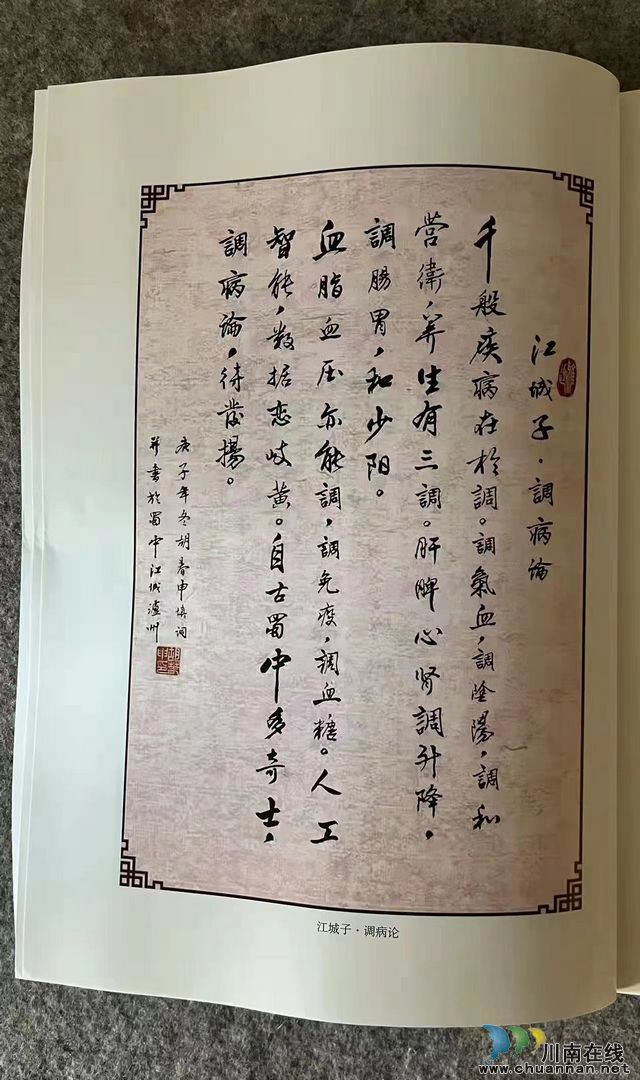 江城子·調病論
千般疾病在於調。調氣血，調陰陽，調和
營衛，养生有三調。肝脾心肾調升降，
調腸胃，和少阳。
血脂血压亦能調，調免疫，調血糖。人工
智能，数据恋岐黄。自古蜀中多奇士，
調病論，待發揚。
庚子年冬胡春申填词
并書於蜀中江城瀘州
江城子·调病论
川南在线
www.chuannan.net